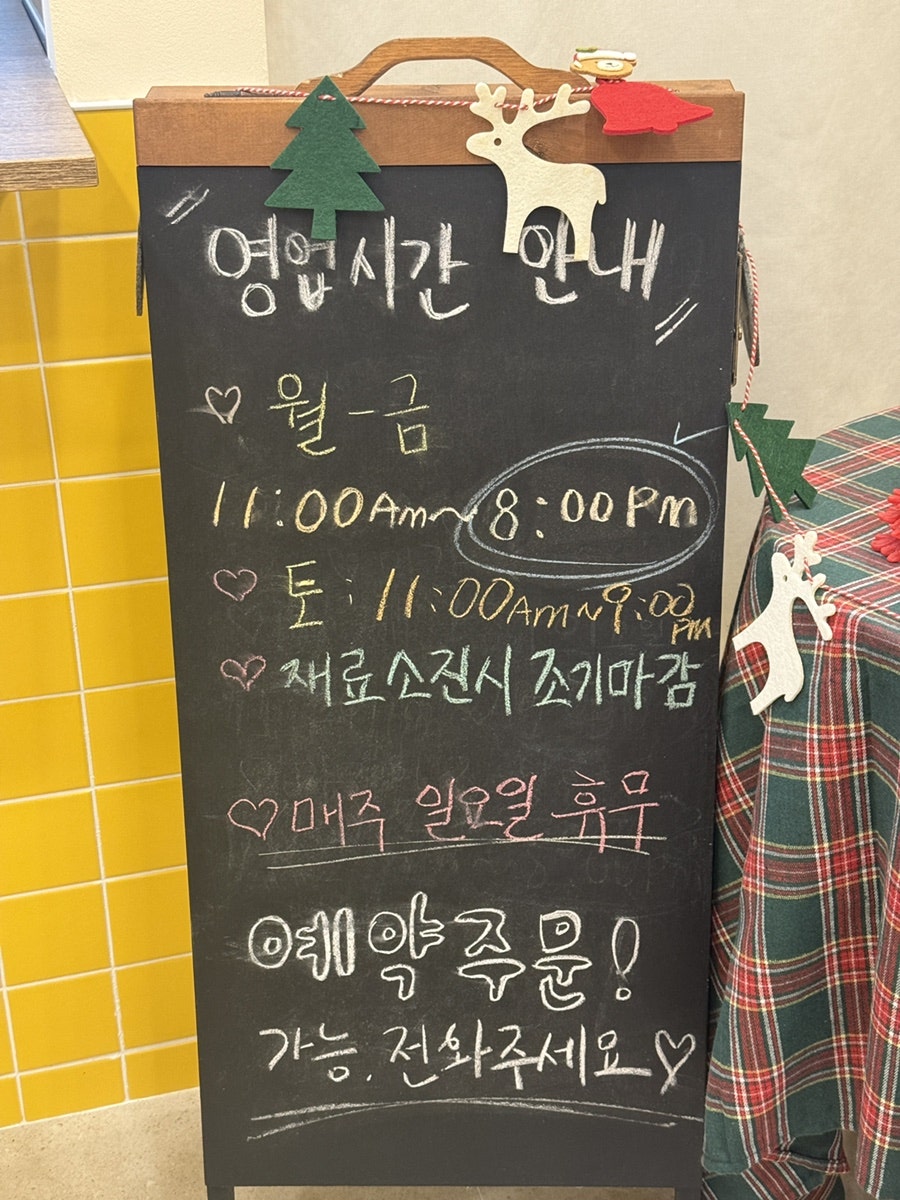 영업시간 안내
♡ 월-금
11:00Am~8:00Pm
♡ 토: 11:00Am~9:00pm
♡ 재료소진시 조기마감
♡매주 일요일 휴무
예약주문!
가능. 전화주세요♡